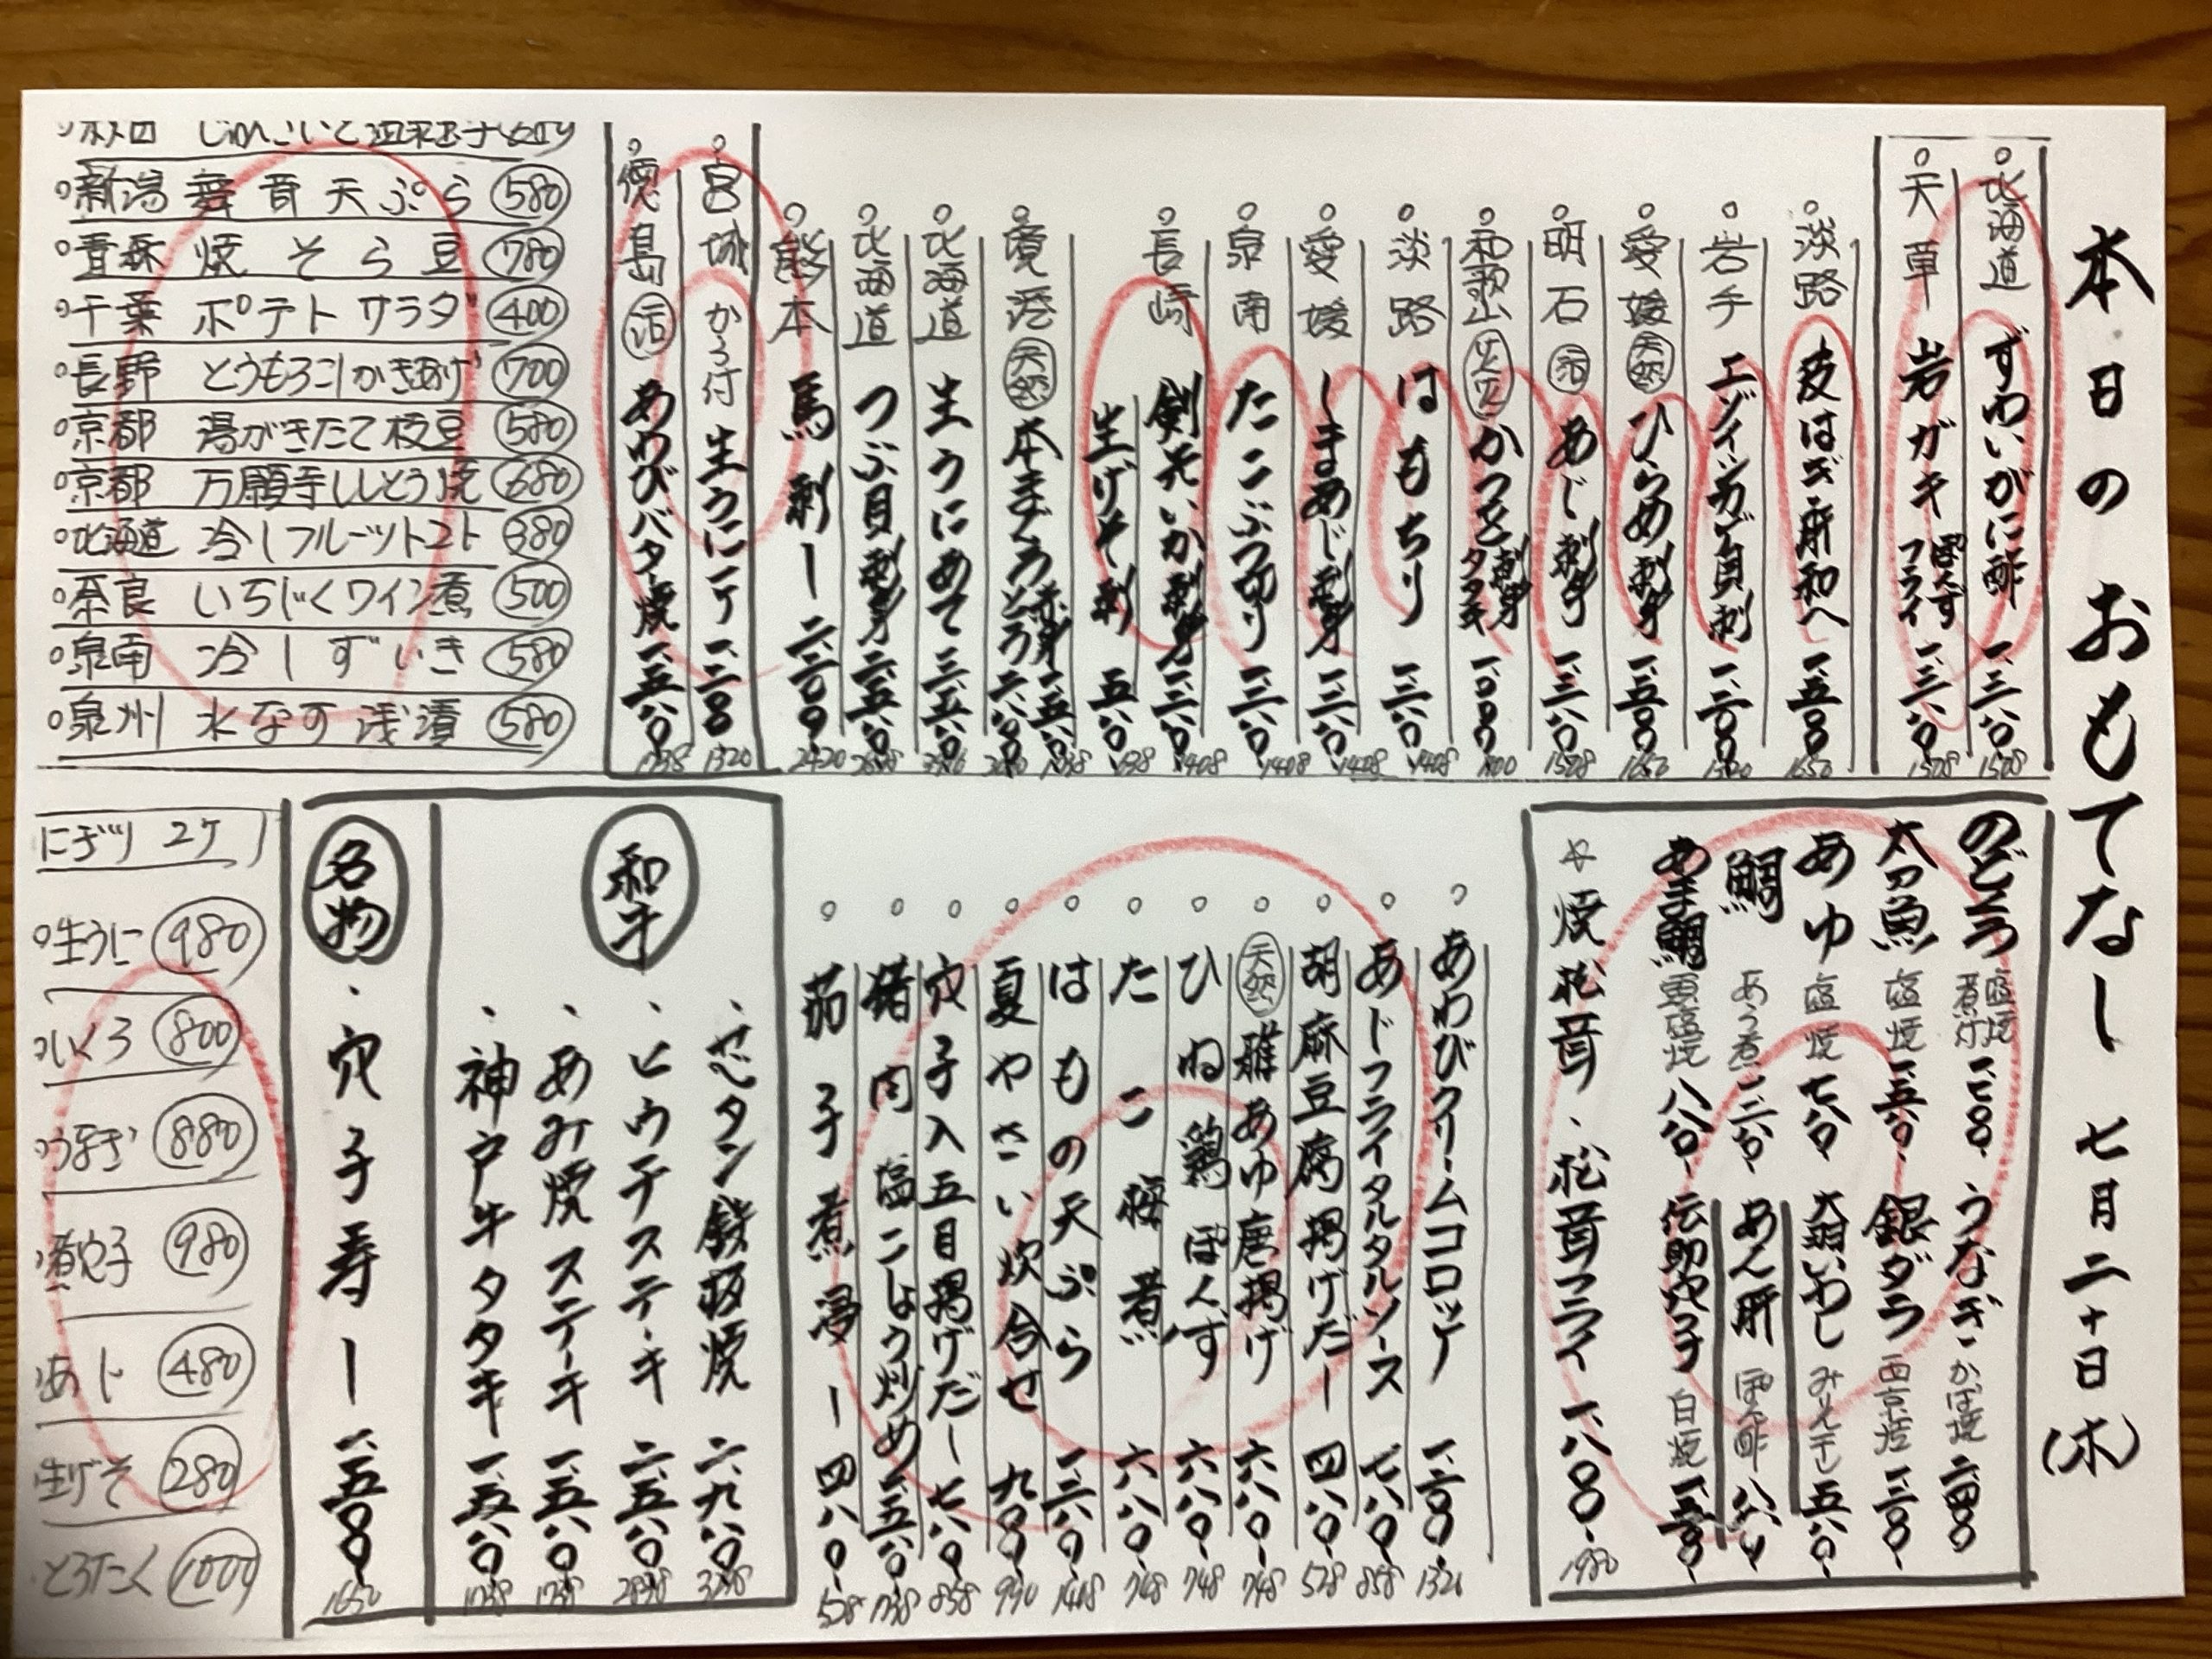 本日のおもてなし 七月二十日(木)
北海道 ずわいがに酢 一、三八〇 1518
天草 岩ガキ ぽんず フライ 一、三八〇 1518
淡路 皮はぎ肝和へ 一、五〇〇 1650
岩手 エゾイシカゲ貝刺 一、二〇〇 1320
愛媛 天然 ひらめ刺身 一、五〇〇 1650
明石 活 あじ刺身 一、三八〇 1518
和歌山 かつを 刺身 タタキ 一、〇〇〇 1100
淡路 はもちり 一、二八〇 1408
愛媛 しまあじ刺身 一、二八〇 1408
泉南 たこぶつ切り 一、二八〇 1408
長崎 剣先いか刺身 一、二八〇 1408
生げそ刺 五八〇 638
境港 天然 本まぐろ 赤身 一、五八〇 1738 とろ
北海道 生うにあて
北海道 つぶ貝刺身
熊本 馬刺し 二、二〇〇 2420
宮城 から付 生うに一ケ 一、二〇〇 1320
徳島 活 あわびバター焼 一、五八〇 1738
新潟 舞茸天ぷら 580
青森 焼そら豆 780
千葉 ポテトサラダ 400
長野 とうもろこしかきあげ 700
京都 湯がきたて枝豆 580
京都 万願寺ししとう焼 680
北海道 冷しフルーツトマト 380
奈良 いちじくワイン煮 500
泉南 冷しずいき 580
泉州 水なす浅漬 580
のどぐろ 塩焼 煮付
うなぎ かば焼
太刀魚 塩焼 一、五八〇
銀ダラ 西京焼
あゆ 塩焼 七八〇
大羽いわし みりん干し 五八〇
鯛 あら煮
あん肝 ぽん酢
あま鯛 頭塩焼 八八〇
伝助穴子 白焼
焼松茸、松茸フライ 一、八〇〇 1980
あわびクリームコロッケ 一、二〇〇 1320
あじフライタルタルソース 七八〇 858
胡麻豆腐揚げだし 四八〇 528
天然 稚あゆ唐揚げ 六八〇 748
ひね鶏ぽんず 六八〇 748
たこ桜煮 六八〇 748
はもの天ぷら 一、二八〇 1408
夏やさい炊合せ 九〇〇 990
穴子入五目揚げだし 七八〇 858
猪肉塩こしょう炒め 一、五八〇 1738
茄子煮浸し 四八〇 528
和牛
芯タン鉄板焼 二、九八〇 3278
ヒウチステーキ 二、五八〇 2838
あみ焼ステーキ 一、五八〇 1738
神戸牛タタキ 一、五八〇 1738
名物
穴子寿し 一、五〇〇 1650
にぎり 2ケ
生うに 980
いくら 800
うなぎ 880
煮穴子 980
あじ 480
生げそ 280
とろたく 1000